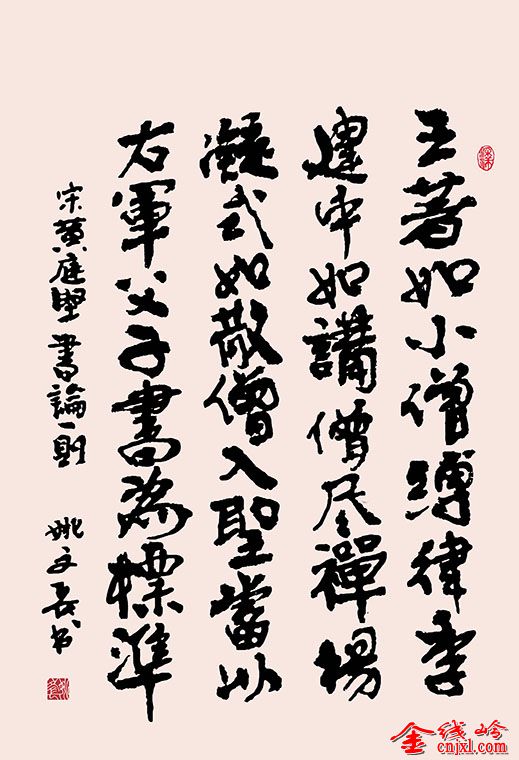 王著如小僧縛律李
建中如講僧参禪楊
凝式如散僧入聖當以
右軍父子書為標準
宋黃庭堅書論一則 姚文長书
金线岭
cnjxl.com